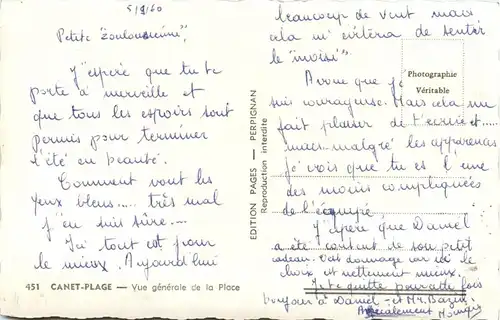 5/9/60
Petite "Zoulousienne",
J'espère que tu te
porte à merveille et
que tous les espoirs sont
permis pour terminer
l'été en beauté.
Comment vont les
yeux bleus..... très mal
j'en suis sûre....
Ici tout est pour
le mieux. Aujourd'hui
451 CANET-PLAGE — Vue générale de la Place
EDITION PAGES — PERPIGNAN
Reproduction interdite
Photographie
Véritable
beaucoup de vent mais
cela m'évitera de sentir
le "moisi".
Avoue que je
suis courageuse. Mais cela me
fait plaisir de t'écrire et.....
mais malgré les apparences
je vois que tu es l'une
des moins compliquées
de l'équipe.
J'espère que Daniel
a été content de son petit
cadeau. Vas dommage car ici le
choix est nettement mieux.
Je te quitte pour cette fois
bonjour à Daniel et Mr. Bazin.
Amicalement